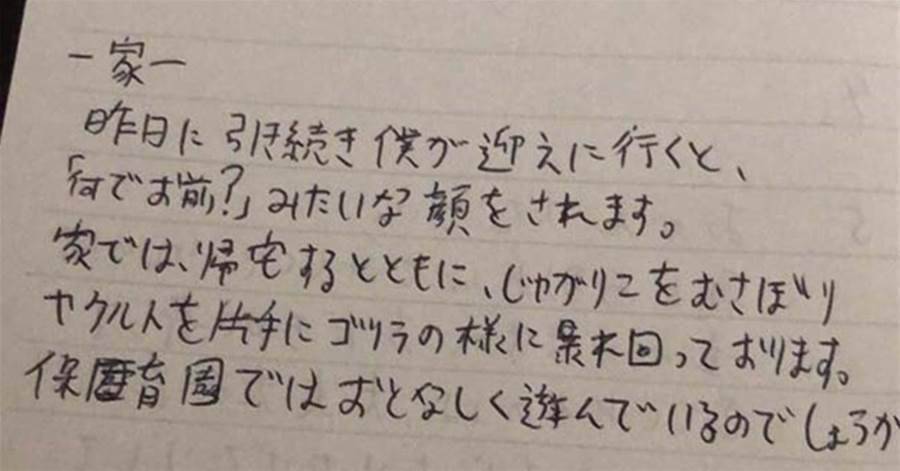 一家一
昨日に引き続き僕が迎えに行くと、
「何でお前?」みたいな顔をされます。
家では、帰宅するとともに、じゃがりこをむさぼり
ヤクルトを片手にゴジラの様に暴れ回っております。
保育園ではおとなしく遊んでいるのでしょうか